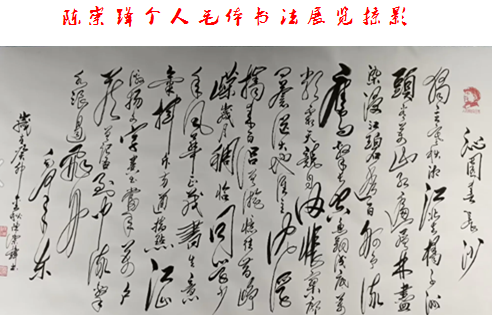 陈崇个人毛体书法展览掠影
沁园春长沙
独立寒秋湘江北去橘子洲
头看万山红遍层林尽
染漫江碧透百舸争流
鹰击长空鱼翔浅底万
类霜天竞自由怅寥廓
问苍茫大地谁主沉浮
携来百侣曾游忆往昔峥
嵘岁月稠恰同学少
年风华正茂书生意
气挥斥方遒指点江山
激扬文字粪土当年万户
侯曾记否到中流击
水浪遏飞舟
毛泽东
岁在癸卯